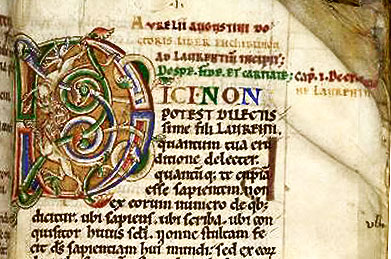 AVRELII AVGVSTINI DO
CTORIS LIBER ENCHIRIDION
AD LAVRENTIVM INCIPIT;
De spe. fide. et caritate; Cap. I.
NE LAVRENTII
DICI NON
POTEST DILECTIS
sime fili LAVRENTI,
quantum tua eru
ditione delecter.
quantuq; te cupia
esse sapientem. non
ex eorum numero de qb;
dicitur. ubi sapiens. ubi scriba. ubi con
quisitor huius scli. nonne stultam fe
cit ds sapientiam hui mundi; sed ex eor